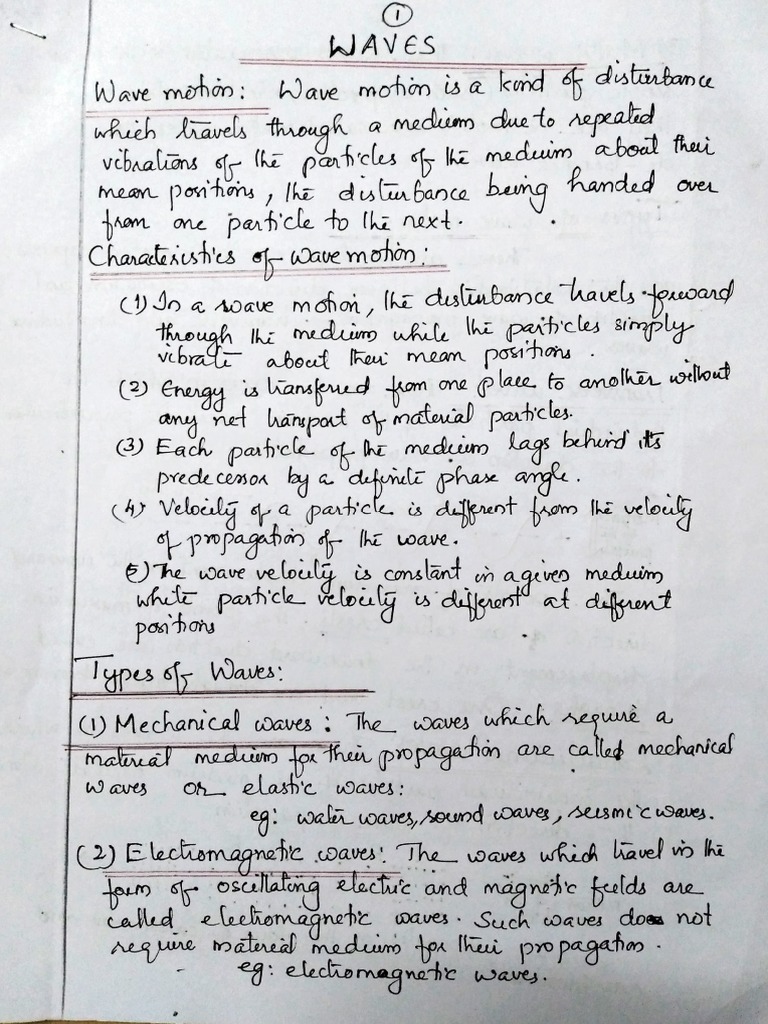 1
WAVES
Wave motion: Wave motion is a kind of disturbance
which travels through a medium due to repeated
vibrations of the particles of the medium about their
mean positions, the disturbance being handed over
from one particle to the next.
Characteristics of wave motion:
(1) In a wave motion, the disturbance travels forward
through the medium while the particles simply
vibrate about their mean positions.
(2) Energy is transferred from one place to another without
any net transport of material particles.
(3) Each particle of the medium lags behind its
predecessor by a definite phase angle.
(4) Velocity of a particle is different from the velocity
of propagation of the wave.
5) The wave velocity is constant in a given medium
while particle velocity is different at different
positions
Types of Waves:
(1) Mechanical waves: The waves which require a
material medium for their propagation are called mechanical
waves or elastic waves:
eg: water waves, sound waves, seismic waves.
(2) Electromagnetic waves: The waves which travel in the
form of oscillating electric and magnetic fields are
called electromagnetic waves. Such waves do not
require material medium for their propagation.
eg: electromagnetic waves.